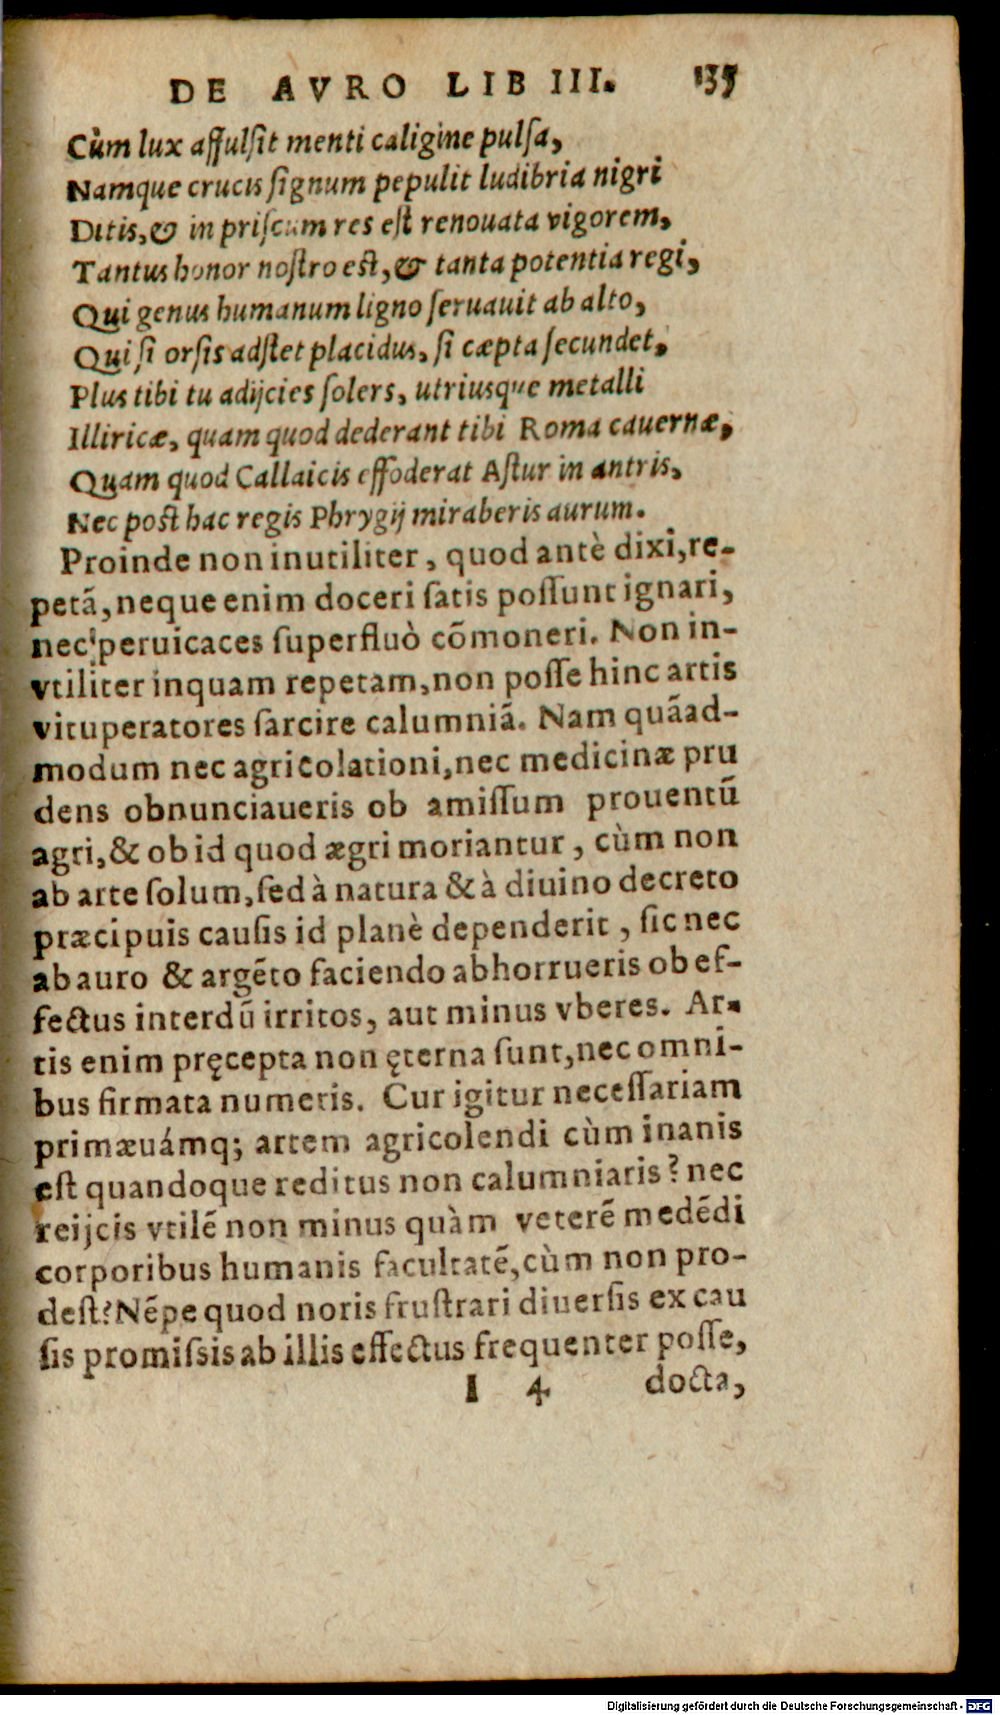 DE AVRO LIB III. 135
Cùm lux affulſit menti caligine pulſa,
Namque crucis ſignum pepulit ludibria nigri
Ditis, & in priſcum res eſt renouata vigorem,
Tantus honor noſtro eſt, & tanta potentia regi,
Qui genus humanum ligno ſeruauit ab alto,
Qui ſi orſis adſtet placidus, ſi cæpta ſecundet,
Plus tibi tu adijcies ſolers, utriusque metalli
Illiricæ, quam quod dederant tibi Roma cauernæ,
Quam quod Callaicis effoderat Aſtur in antris,
Nec poſt hac regis Phrygij miraberis aurum.
Proinde non inutiliter, quod antè dixi, re-
petā, neque enim doceri ſatis poſſunt ignari,
nec peruicaces ſuperfluò cōmoneri. Non in-
vtiliter inquam repetam, non poſſe hinc artis
vituperatores ſarcire calumniā. Nam quāad-
modum nec agricolationi, nec medicinæ pru
dens obnunciaueris ob amiſſum prouentū
agri, & ob id quod ægri moriantur, cùm non
ab arte ſolum, ſed à natura & à diuino decreto
præcipuis cauſis id planè dependerit, ſic nec
ab auro & argēto faciendo abhorrueris ob ef-
fectus interdū irritos, aut minus vberes. Ar-
tis enim pręcepta non ęterna ſunt, nec omni-
bus firmata numeris. Cur igitur neceſſariam
primæuámq; artem agricolendi cùm inanis
eſt quandoque reditus non calumniaris? nec
reijcis vtilē non minus quàm veterē medēdi
corporibus humanis facultatē, cùm non pro-
deſt? Nēpe quod noris fruſtrari diuerſis ex cau
ſis promiſsis ab illis effectus frequenter poſſe,
I 4 docta,
Digitalisierung gefördert durch die Deutsche Forschungsgemeinschaft - DFG